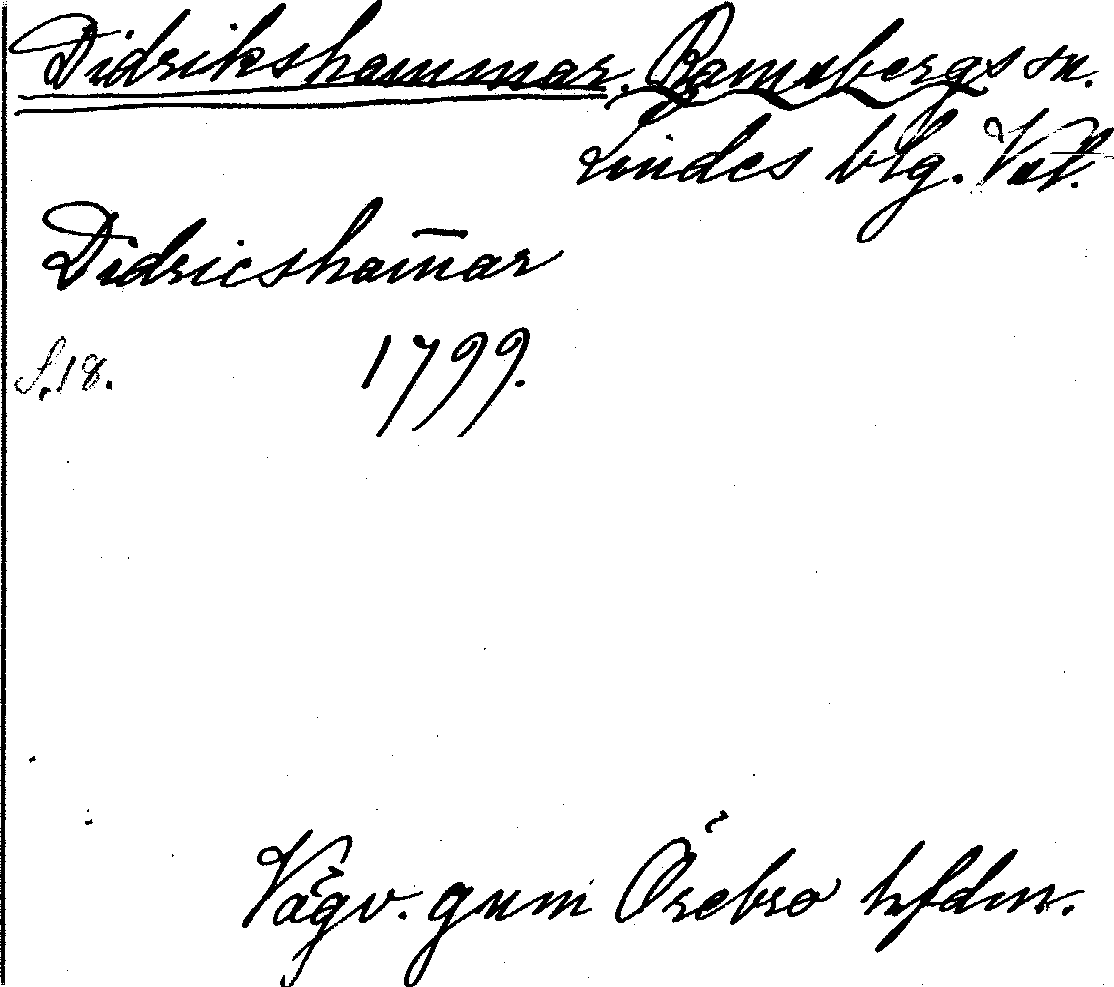 Didrikshammar. Ramsbergs sn.
Lindes blg. Vstl.
Didricsham̅ar
S. 18. 1799.
Vägv. gnm Örebro hfdm.